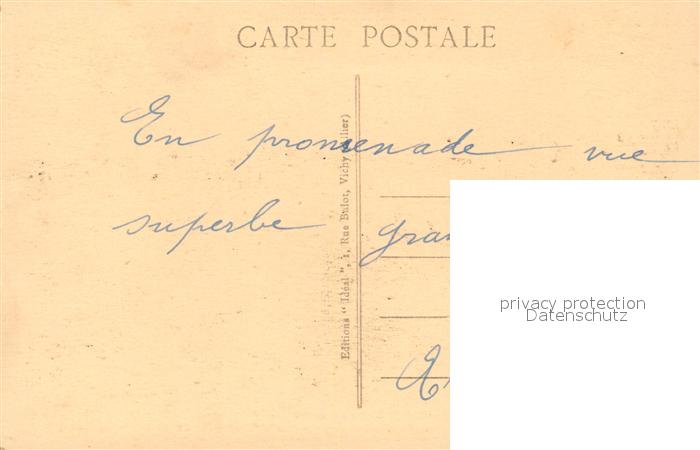 CARTE POSTALE
En promenade vue
superbe
Editions "Idéal", 1, Rue Bulot, Vichy (Allier)
privacy protection
Datenschutz